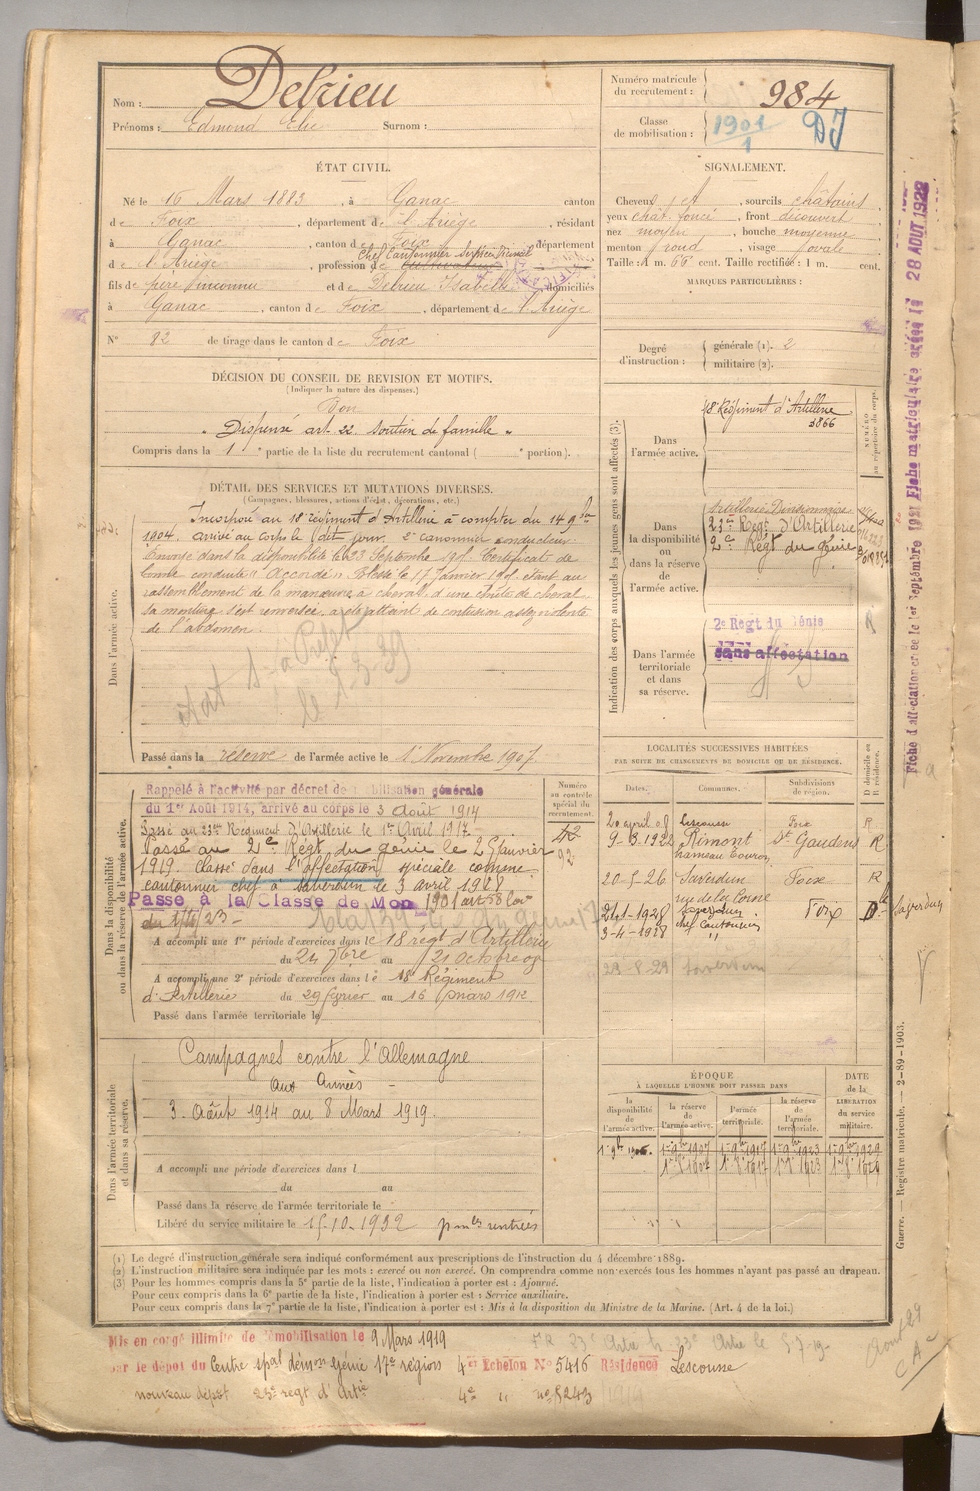 Nom : Delrieu
Prénoms : Edmond Elie Surnom :
Numéro matricule du recrutement : 984
Classe de mobilisation : 1901/1 DJ
ÉTAT CIVIL.
Né le 16 Mars 1883, à Ganac canton
de Foix, département de l'Ariège, résidant
à Ganac, canton de Foix département
de l'Ariège, profession de Chef Cantonnier Service Vicinal
fils de père inconnu et de Delrieu Isabelle domiciliés
à Ganac, canton de Foix, département de l'Ariège
N° 82 de tirage dans le canton de Foix
SIGNALEMENT.
Cheveux et sourcils châtains,
yeux chât. foncé, front découvert
nez moyen, bouche moyenne,
menton rond, visage ovale.
Taille : 1 m. 66 cent. Taille rectifiée : 1 m. cent.
MARQUES PARTICULIÈRES :
Degré d'instruction : générale (1). 2
militaire (2).
DÉCISION DU CONSEIL DE REVISION ET MOTIFS.
(Indiquer la nature des dispenses.)
Bon
" Dispensé art. 22. Soutien de famille "
Compris dans la 1e partie de la liste du recrutement cantonal ( e portion).
DÉTAIL DES SERVICES ET MUTATIONS DIVERSES.
(Campagnes, blessures, actions d'éclat, décorations, etc.)
Dans l'armée active.
Incorporé au 18e régiment d'Artillerie à compter du 14 9bre
1904. arrivé au corps le dit jour. 2e canonnier conducteur.
Envoyé dans la disponibilité le 23 Septembre 1905. Certificat de
bonne conduite "Accordé". Blessé le 17 Janvier 1905 étant au
rassemblement de la manœuvre à cheval d'une chute de cheval,
sa monture s'est renversée, a été atteint de contusion assez violente
de l'abdomen.
Passé dans la réserve de l'armée active le 1er Novembre 1907.
Indication des corps auxquels les jeunes gens sont affectés (3).
NUMÉRO au répertoire du corps.
Dans l'armée active.
18e Régiment d'Artillerie
3866
Dans la disponibilité ou dans la réserve de l'armée active.
23me Régt d'Artillerie
2e Régt du génie
Dans l'armée territoriale et dans sa réserve.
2e Régt du Génie
sans affectation
LOCALITÉS SUCCESSIVES HABITÉES
PAR SUITE DE CHANGEMENTS DE DOMICILE OU DE RÉSIDENCE.
Dates. Communes. Subdivisions de région. D domicile ou R résidence.
20 avril 08 Lescousse Foix R
9-8-1922 Rimont St Gaudens R
hameau
20-5-26 Saverdun Foix R
Saverdun Foix D
3-4-1928 chef Cantonnier "
29-8-29 Saverdun
Dans la disponibilité ou dans la réserve de l'armée active.
Numéro au contrôle spécial du recrutement.
Rappelé à l'activité par décret de mobilisation générale
du 1er Août 1914, arrivé au corps le 3 Août 1914
Passé au 23me Régiment d'Artillerie le 1er Avril 1917 -
Passé au 2e Régt du génie le 2 Janvier
1919. Classé dans l'affectation spéciale comme
cantonnier chef à Saverdun le 3 avril 1928
Passé à la Classe de Mob 1901 art 58 loi
du 1/4/23 -
A accompli une 1re période d'exercices dans le 18e régt d'Artillerie
du 24 7bre au 21 octobre 09
A accompli une 2e période d'exercices dans le 18e Régiment
d'Artillerie du 29 février au 16 mars 1912
Passé dans l'armée territoriale le
Dans l'armée territoriale et dans sa réserve.
Campagnes contre l'Allemagne
aux Armées -
3 Août 1914 au 8 Mars 1919.
A accompli une période d'exercices dans l
du au
Passé dans la réserve de l'armée territoriale le
Libéré du service militaire le 15-10-1932
ÉPOQUE
À LAQUELLE L'HOMME DOIT PASSER DANS
la disponibilité de l'armée active. la réserve de l'armée active. l'armée territoriale. la réserve de l'armée territoriale. DATE de la LIBÉRATION du service militaire.
1er 9bre 1907 1er 9bre 1917 1er 9bre 1923 1er 9bre 1929
(1) Le degré d'instruction générale sera indiqué conformément aux prescriptions de l'instruction du 4 décembre 1889.
(2) L'instruction militaire sera indiquée par les mots : exercé ou non exercé. On comprendra comme non exercés tous les hommes n'ayant pas passé au drapeau.
(3) Pour les hommes compris dans la 5e partie de la liste, l'indication à porter est : Ajourné.
Pour ceux compris dans la 6e partie de la liste, l'indication à porter est : Service auxiliaire.
Pour ceux compris dans la 7e partie de la liste, l'indication à porter est : Mis à la disposition du Ministre de la Marine. (Art. 4 de la loi.)
Mis en congé illimité de démobilisation le 9 Mars 1919
par le dépôt du Centre spal démon Génie 17e région 4e Echelon N° 5416 Résidence Lescousse
nouveau dépôt 23e regt d'Artie 4e " n° 5243
Guerre. — Registre matricule. — 2-89-1903.
Fiche d'affectation créée le 1er Septembre 1921 Fiche matriculaire créée le 28 AOUT 1922